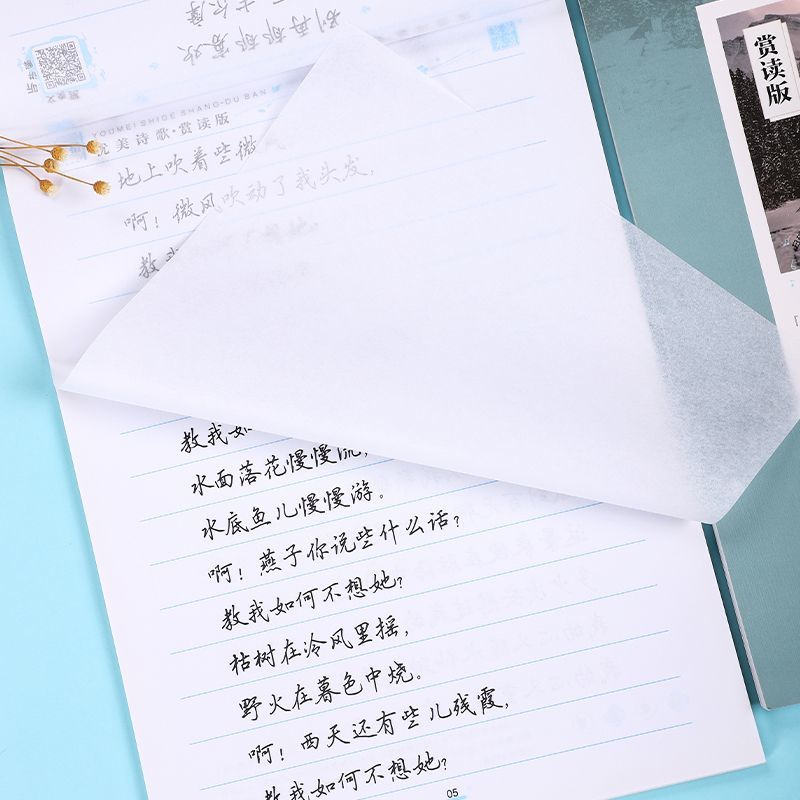 听讲解
YOUMEI SHIGE SHANG·DU BAN
优美诗歌·赏读版
地上吹着些微
啊！微风吹动了我头发，
教我
教我如
水面落花慢慢流，
水底鱼儿慢慢游。
啊！燕子你说些什么话？
教我如何不想她？
枯树在冷风里摇，
野火在暮色中烧。
啊！西天还有些儿残霞，
教我如何不想她？
05
赏读版